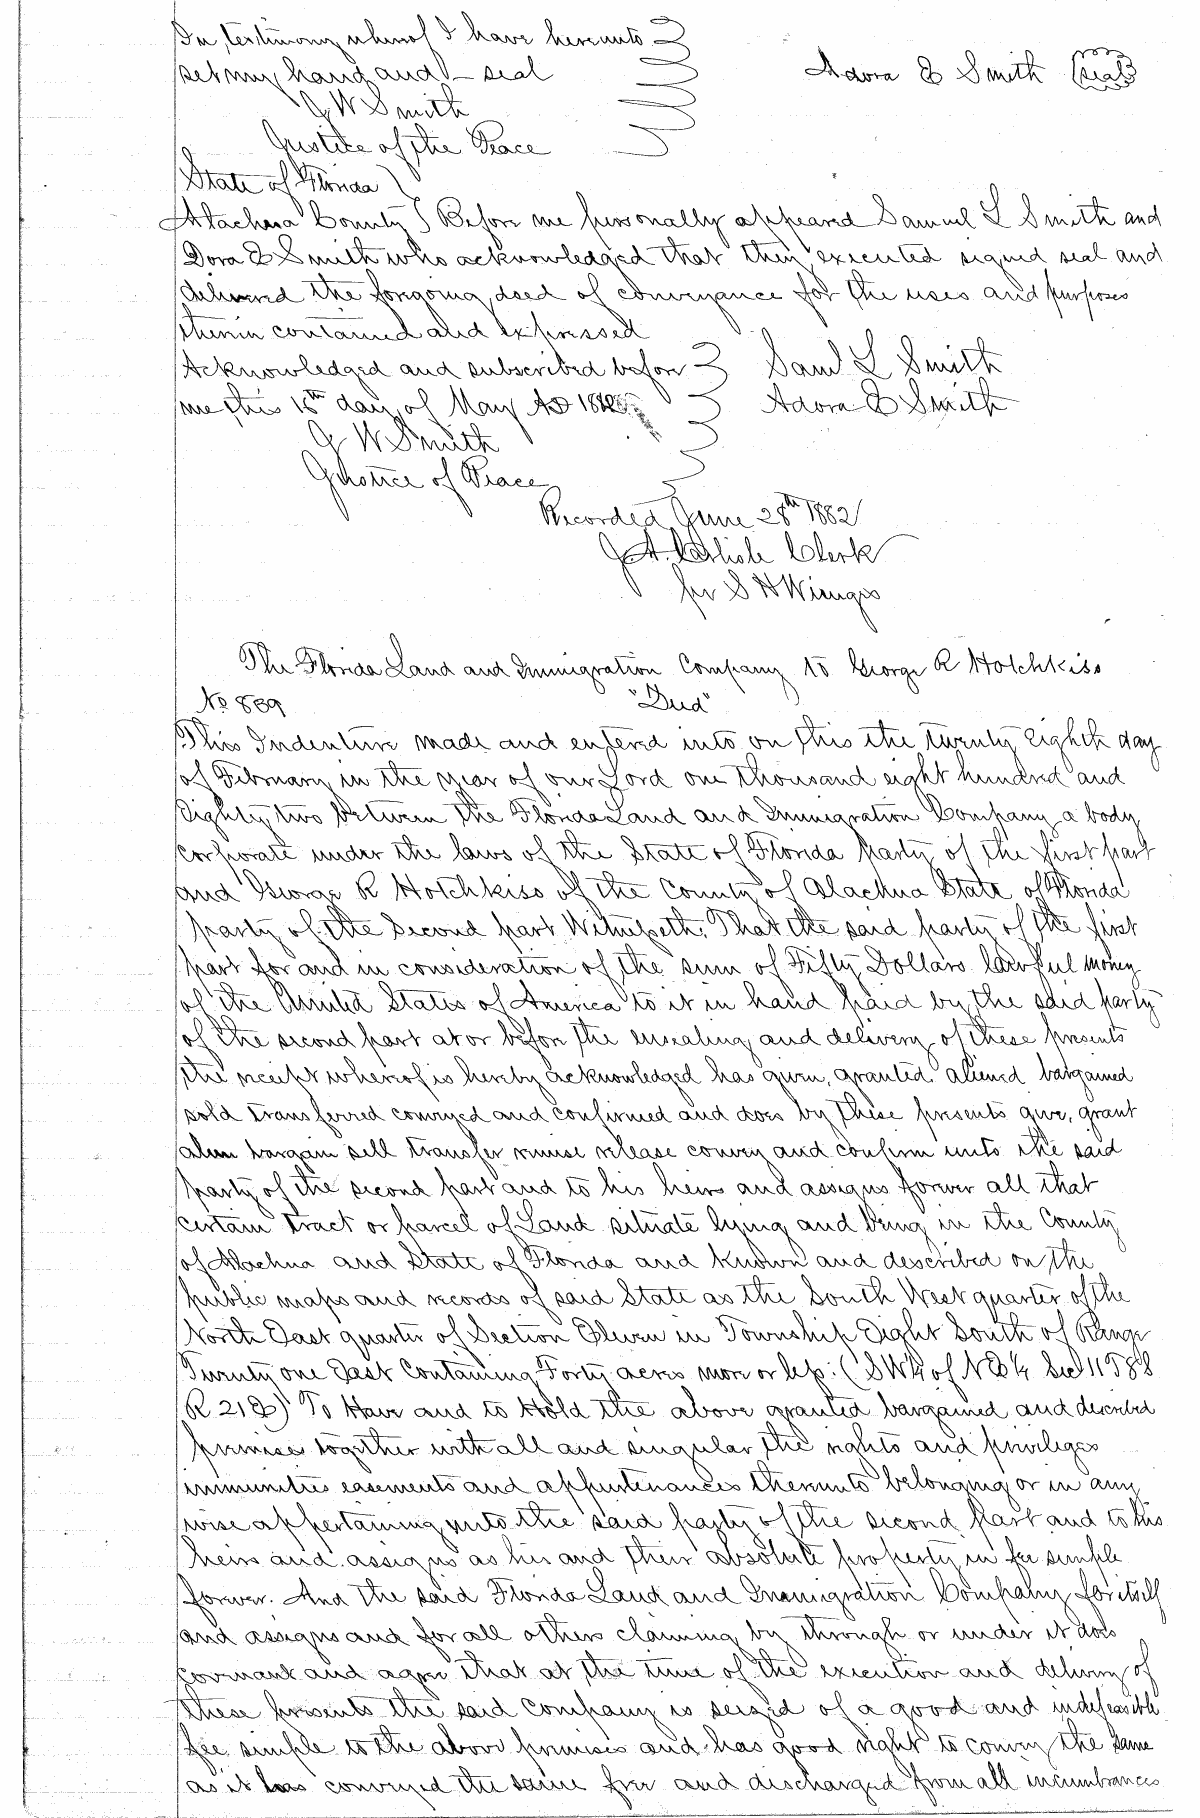 In testimony whereof I have hereunto
set my hand and - seal Adora E Smith (seal)
G W Smith
Justice of the Peace
State of Florida
Alachua County Before me personally appeared Samuel L Smith and
Dora E Smith who acknowledged that they executed signed seal and
delivered the foregoing deed of conveyance for the uses and purposes
therein contained and expressed
Acknowledged and subscribed before Saml L Smith
me this 15th day of May AD Adora E Smith
G W Smith
Justice of Peace
Recorded June 28th 1882
J A. Carlisle Clerk
per S H Wienges
The Florida Land and Immigration Company to George R Hotchkiss
No 889 "Deed"
This Indenture made and entered into on this the twenty Eighth day
of February in the year of our Lord one thousand eight hundred and
Eighty two between the Florida Land and Immigration Company a body
corporate under the laws of the State of Florida party of the first part
and George R Hotchkiss of the County of Alachua State of Florida
party of the second part Witnesseth, That the said party of the first
part for and in consideration of the sum of Fifty Dollars lawful money
of the United States of America to it in hand paid by the said party
of the second part at or before the ensealing and delivery of these presents
the receipt whereof is hereby acknowledged has given, granted aliened bargained
sold transferred conveyed and confirmed and does by these presents give, grant
alien bargain sell transfer remise release convey and confirm unto the said
party of the second part and to his heirs and assigns forever all that
certain tract or parcel of Land situate lying and being in the County
of Alachua and State of Florida and known and described on the
public maps and records of said State as the South West quarter of the
North East quarter of Section Eleven in Township Eight South of Range
Twenty one East Containing Forty acres more or less: (SW¼ of NE¼ Sec 11 T8S
R 21E) To Have and to Hold the above granted bargained and described
premises together with all and singular the rights and privileges
immunities easements and appurtenances thereunto belonging or in any
wise appertaining unto the said party of the second part and to his
heirs and assigns as his and their absolute property in fee simple
forever. And the said Florida Land and Immigration Company for itself
and assigns and for all others claiming by through or under it does
covenant and agree that at the time of the execution and delivery of
these presents the said Company is seized of a good and indefeasible
fee simple to the above premises and has good right to convey the same
as it has conveyed the same free and discharged from all incumbrances